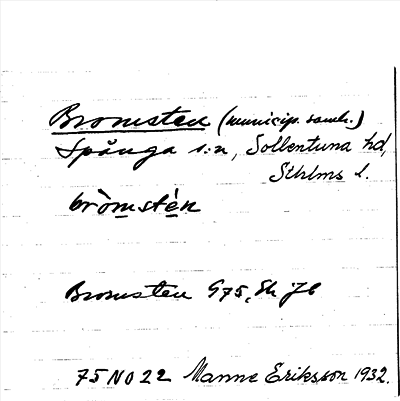 Bromsten (municip. samh.)
Spånga s:n, Sollentuna hd,
Sthlms l.
bròmstèn
Bromsten G75, Sh J8
75 NO 22 Manne Eriksson 1932.